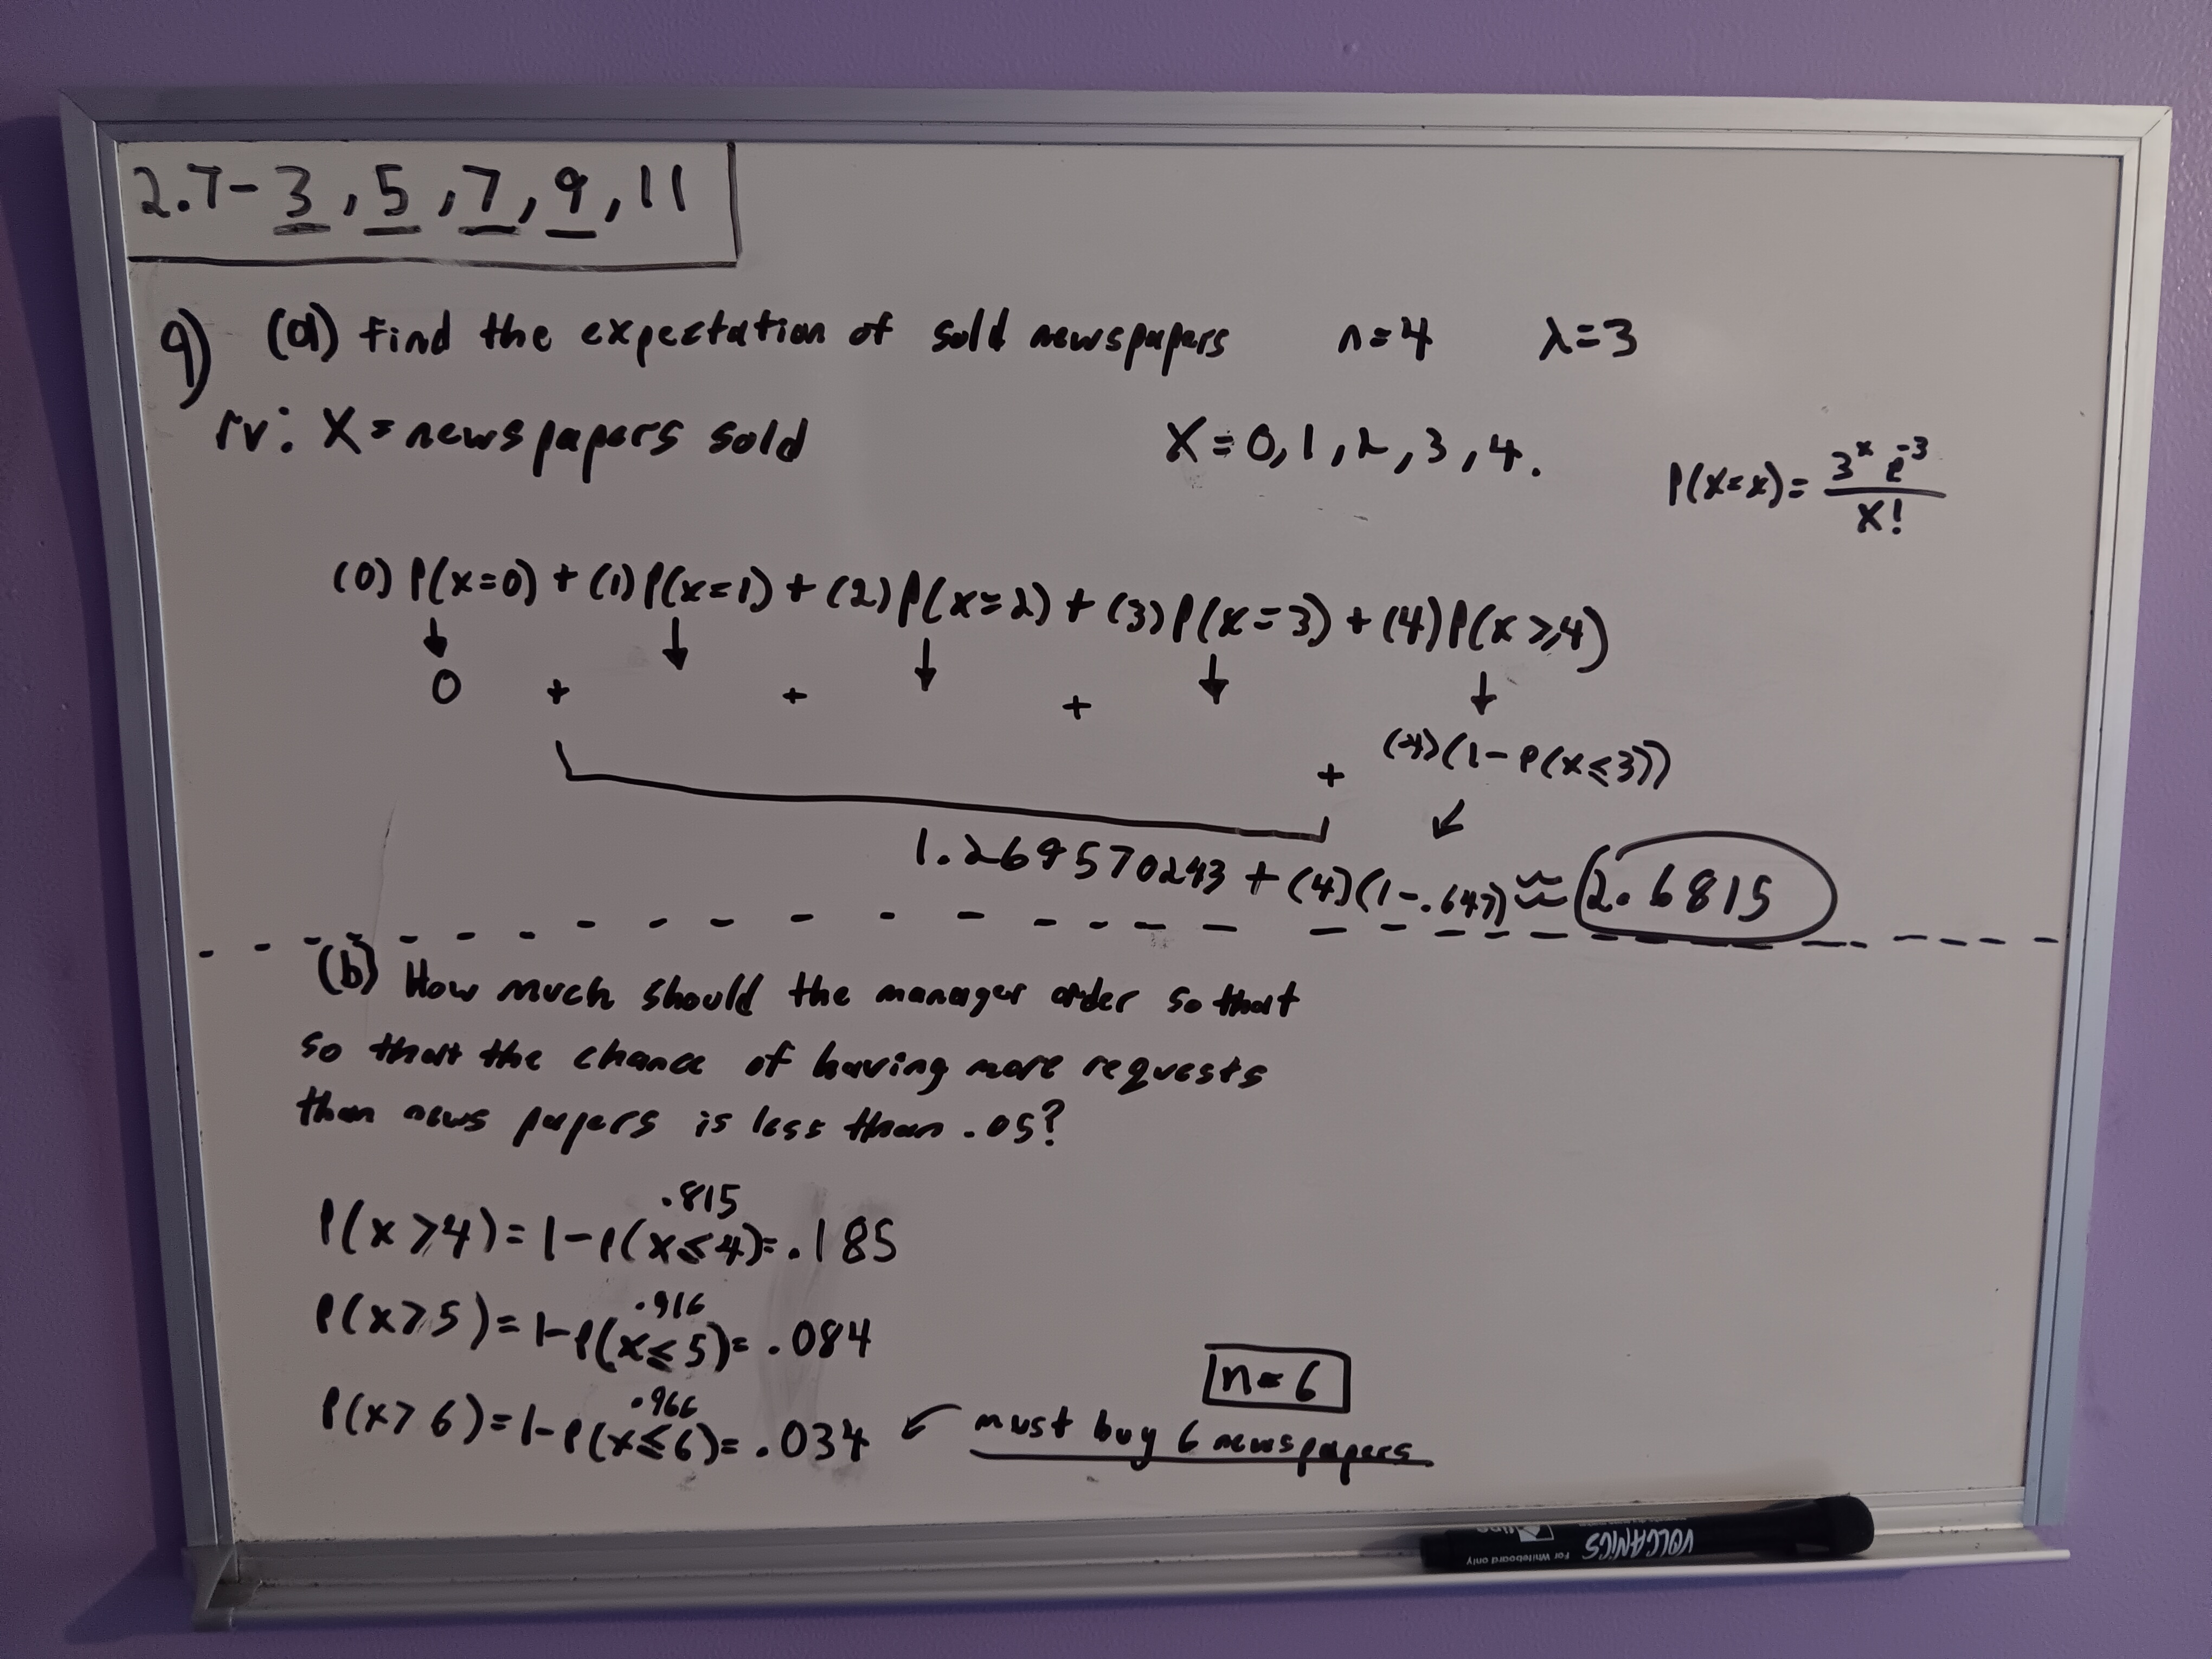 2.7-3,5,7,9,11
9) (a) find the expectation of sold newspapers n=4 λ=3
rv: X = newspapers sold X=0,1,2,3,4.
P(X=x)= 3^x e^-3 / x!
(0)P(x=0) + (1)P(x=1) + (2)P(x=2) + (3)P(x=3) + (4)P(x≥4)
↓ ↓ ↓ ↓ ↓
0 + + + + (4)(1-P(x≤3))
1.269570243 + (4)(1-.647) ≈ 2.6815
(b) How much should the manager order so that
so that the chance of having more requests
than news papers is less than .05?
.815
P(x>4)=1-P(x≤4)=.185
.916
P(x>5)=1-P(x≤5)=.084
.966
P(x>6)=1-P(x≤6)=.034 ↙ must buy 6 newspapers
n=6
VOLCANICS
For Whiteboard only